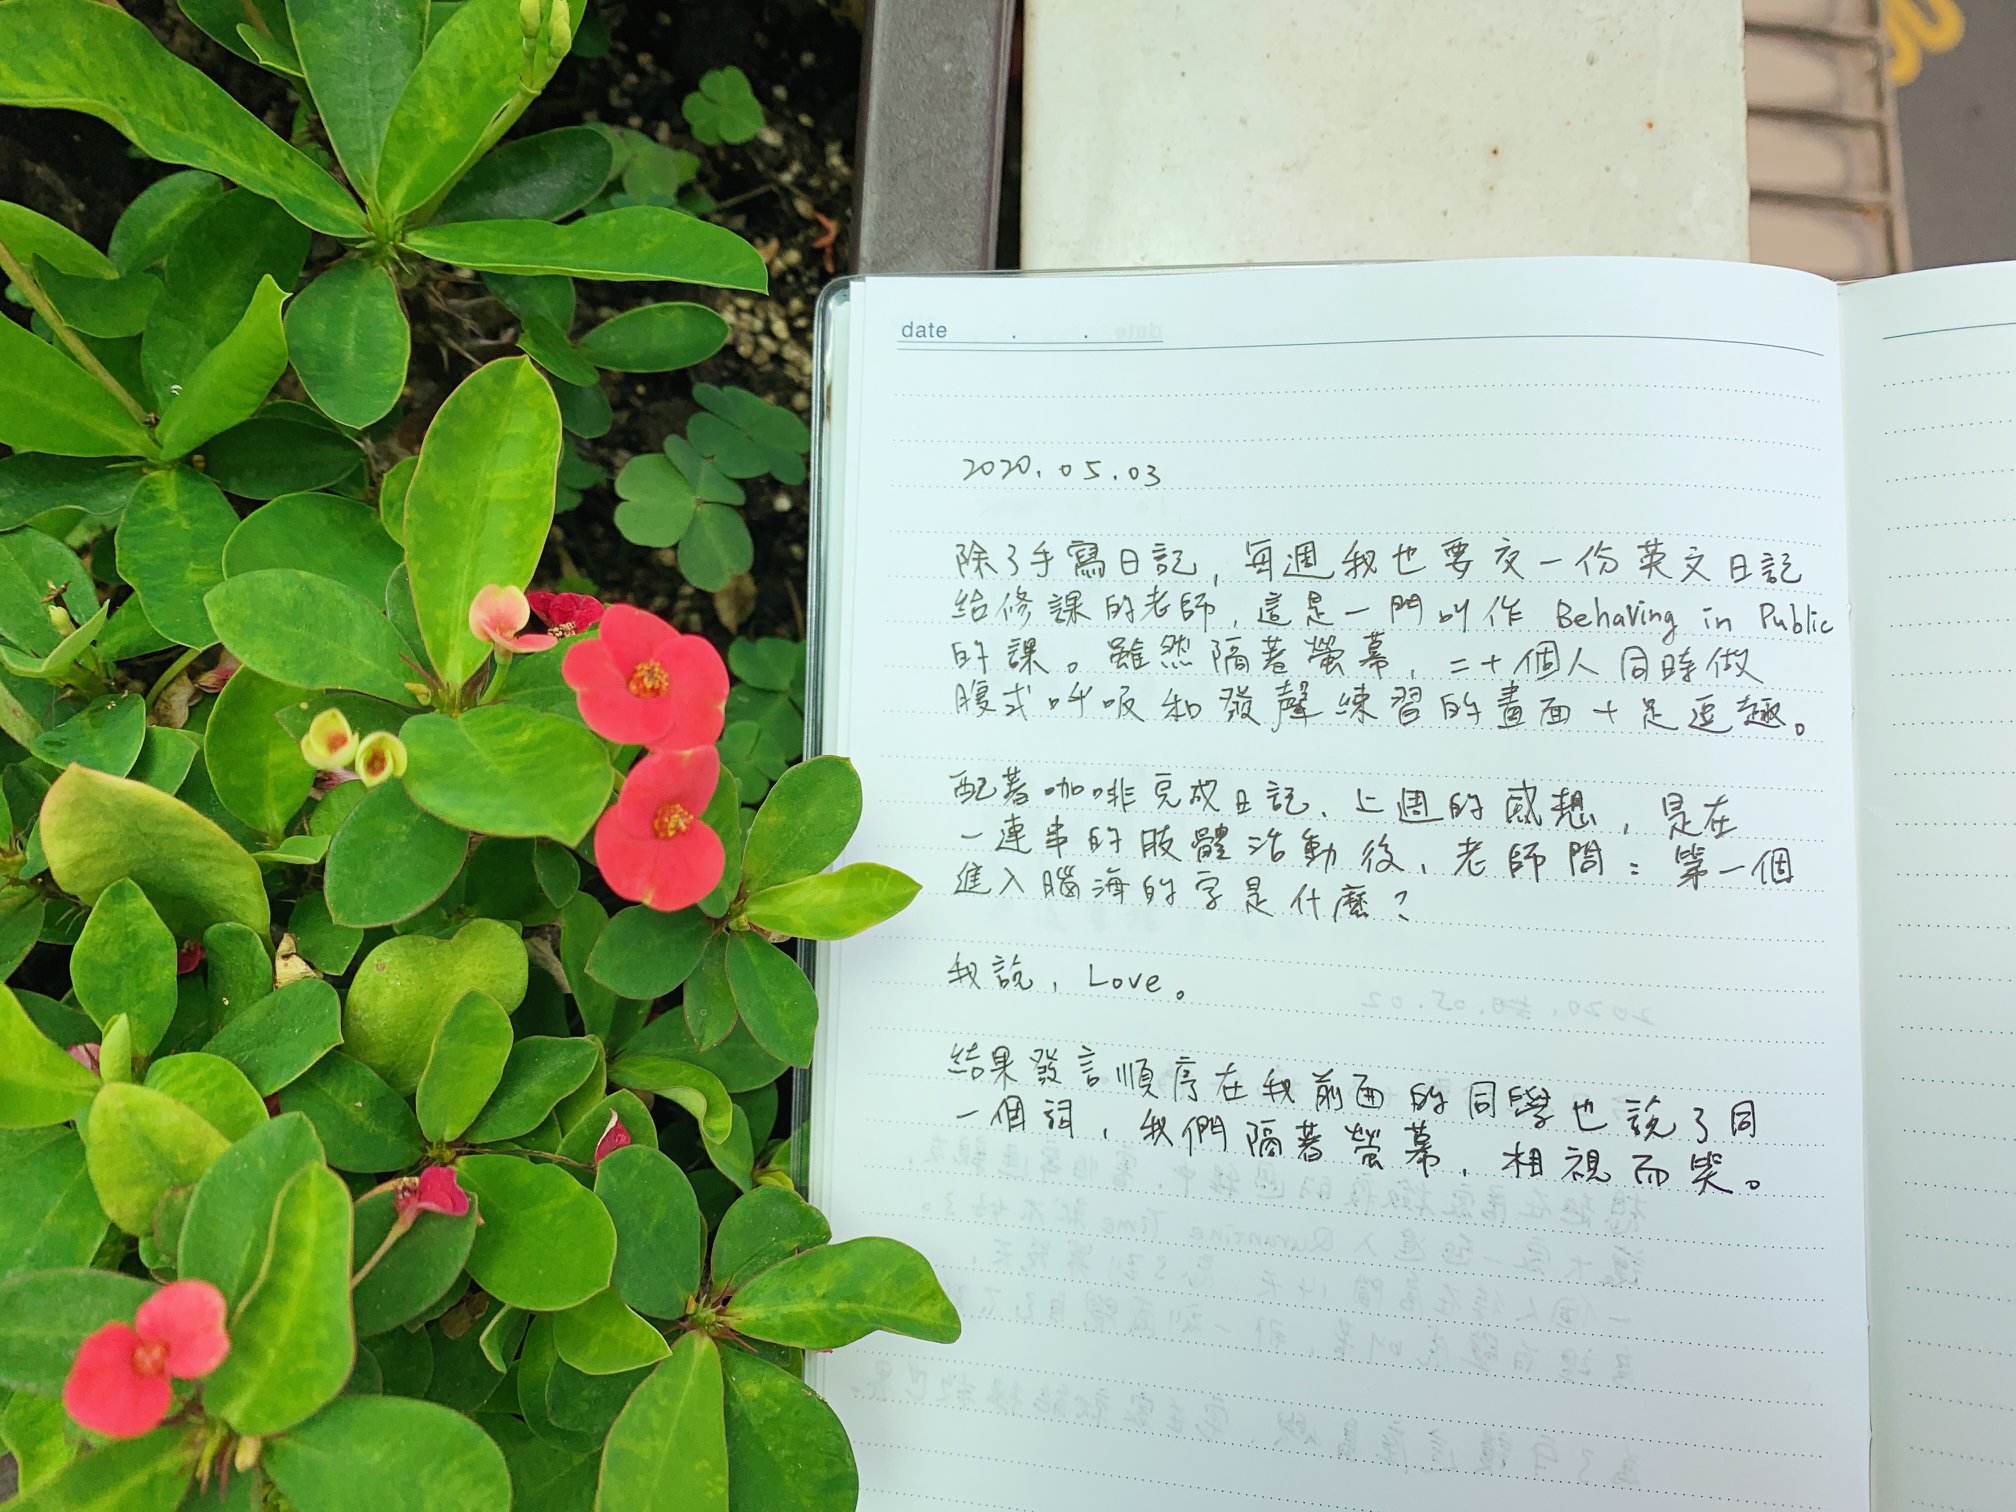 date . .
2020.05.03
除了手寫日記,每週我也要交一份英文日記
給修課的老師,這是一門叫作 Behaving in Public
的課。雖然隔著螢幕,二十個人同時做
腹式呼吸和發聲練習的畫面十足逗趣。
配著咖啡完成日記、上週的感想,是在
一連串的肢體活動後,老師問:第一個
進入腦海的字是什麼?
我說,Love。
結果發言順序在我前面的同學也說了同
一個詞,我們隔著螢幕,相視而笑。